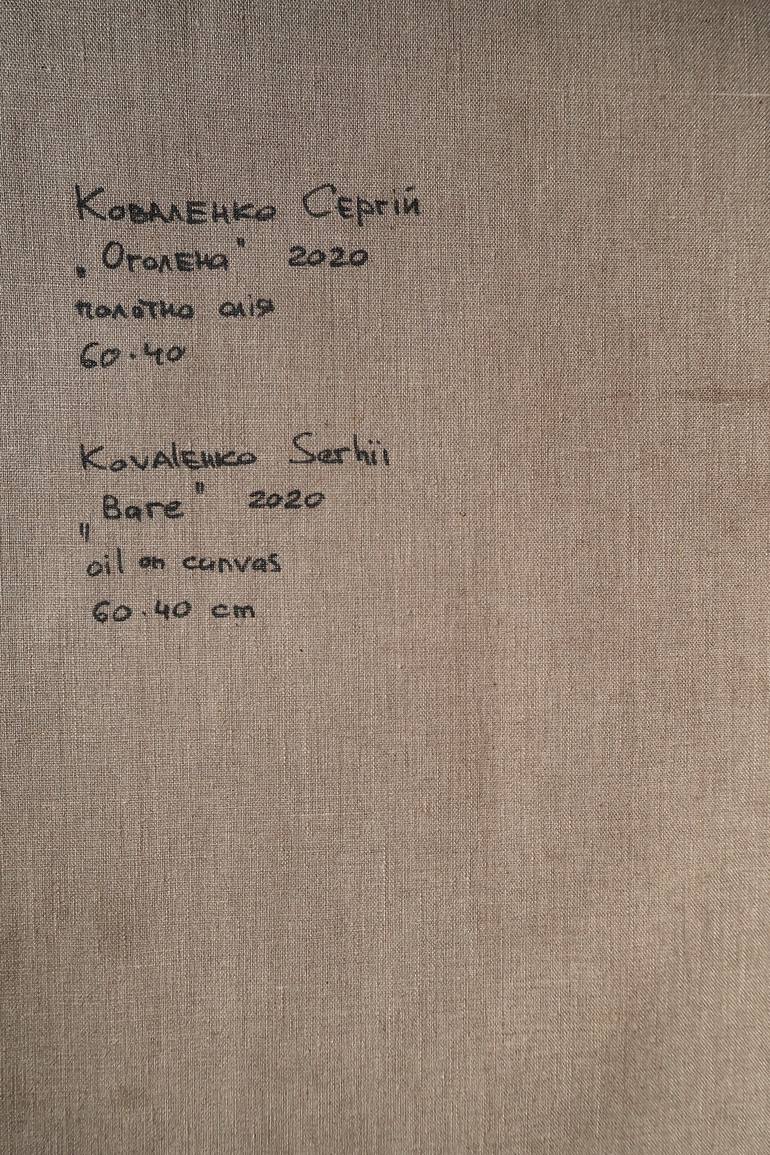 Коваленко Сергій
„Оголена" 2020
полотно олія
60·40
Kovalenko Serhii
„Bare" 2020
oil on canvas
60·40 cm